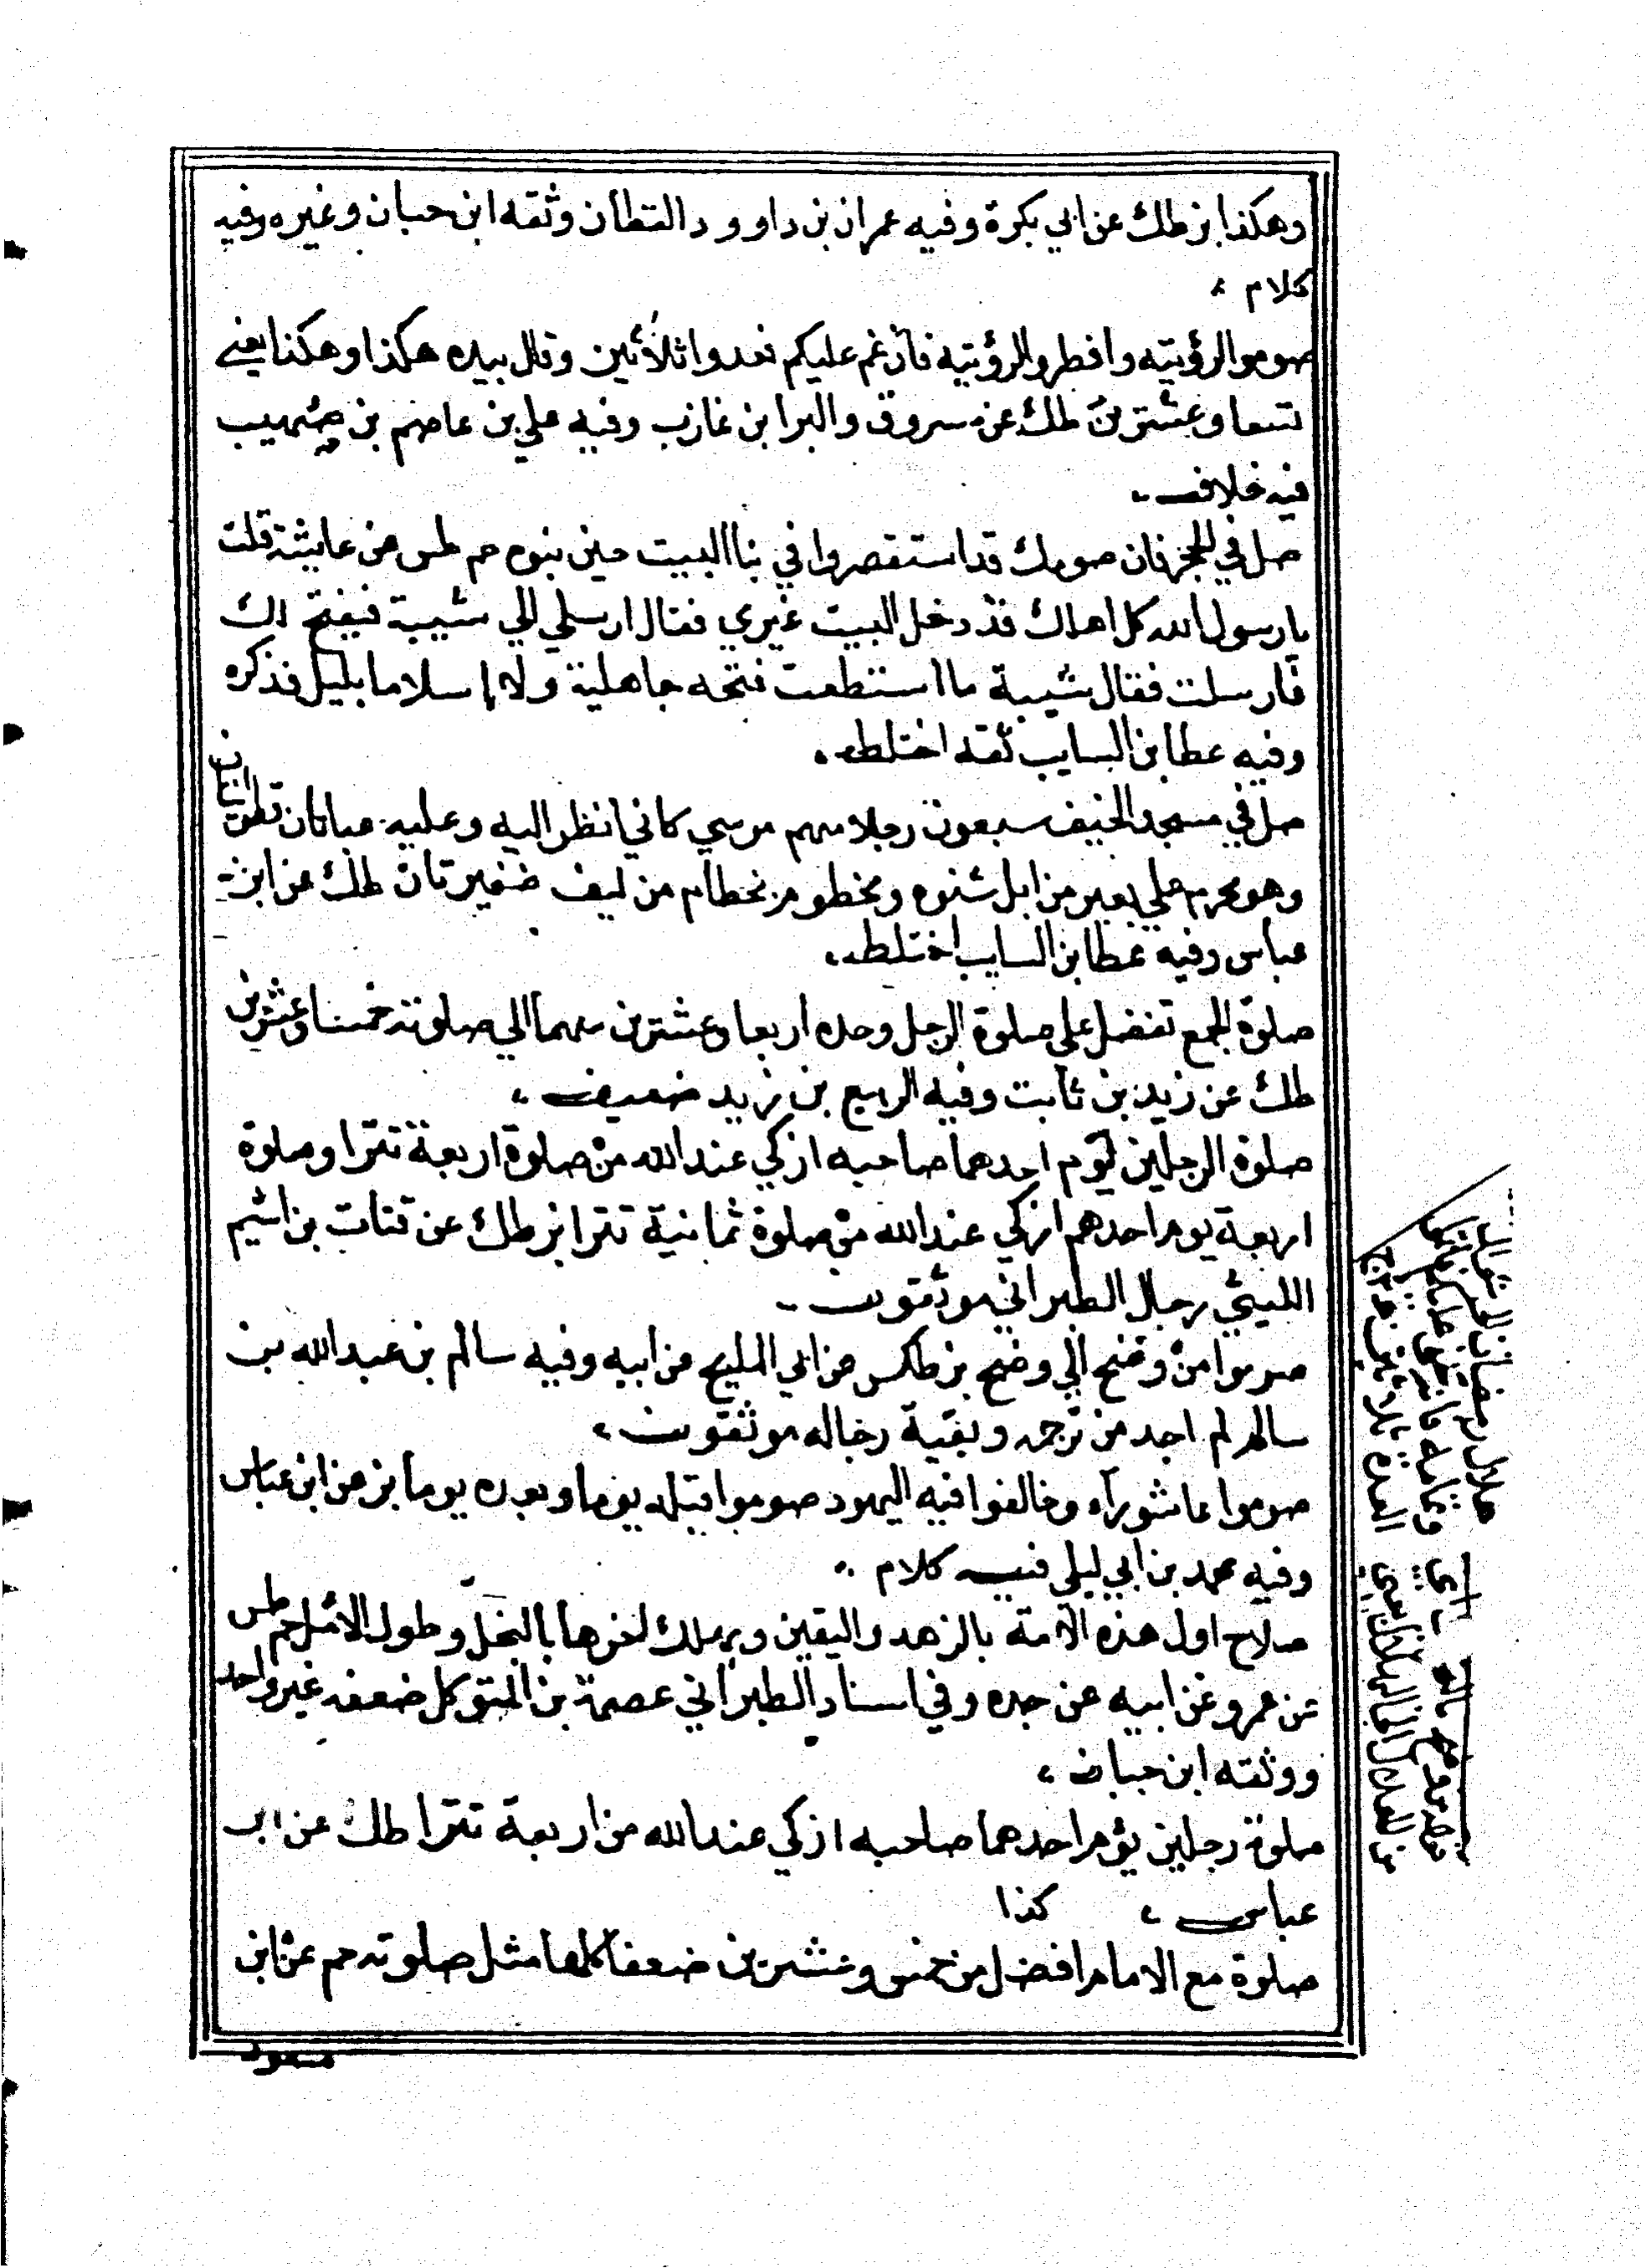 وهكذا بز طك عن ابي بكرة وفيه عمران بن داوود القطان وثقه ابن حبان وغيره وفيه
كلام
صوموا لرؤيته وافطروا لرؤيته فان غم عليكم فعدوا ثلاثين وقال بيده هكذا وهكذا يعني
تسعا وعشرين طك عن مسروق والبرا بن عازب وفيه علي بن عاصم بن صهيب
فيه خلاف
صل في الحجر فان قومك قد استقصروا في بنا البيت حين بنوه حم طس عن عايشة قلت
يارسول الله كل اهلك قد دخل البيت غيري فقال ارسلي الي شيبة فيفتح لك
فارسلت فقال شيبة ما استطعت فتحه جاهلية ولا إسلاما بليل فذكره
وفيه عطا بن السايب ثقه اختلط
صل في مسجد الخيف سبعون رجلا منهم موسي كاني انظر اليه وعليه عباتان قطوانيتان
وهو محرم علي بعير من ابل شنوه ومخطوم بخطام من ليف ضفيرتان طك عن ابن
عباس وفيه عطا بن السايب اختلط
صلوة الجمع تفضل علي صلوة الرجل وحده اربعا وعشرين سهما الي صلوته خمسا وعشرين
طك عن زيد بن ثابت وفيه الربيع بن زيد ضعيف
صلوة الرجلين يؤم احدهما صاحبه ازكي عند الله من صلوة اربعة تترا وصلوة
اربعة يوم احدهم ازكي عند الله من صلوة ثمانية تترا بز طك عن قتات بن اشيم
الليثي رجال الطبراني موثقون
صوموا من وضح الي وضح بز طكس عن ابي المليح عن ابيه وفيه سالم بن عبد الله بن
سالم لم اجد من ترجمه وبقية رجاله موثقون
صوموا عاشوراء وخالفوا فيه اليهود صوموا قبله يوما وبعده يوما بز عن ابن عباس
وفيه محمد بن ابي ليلي فيه كلام
صلاح اول هذه الامة بالزهد واليقين ويهلك اخرها بالبخل وطول الامل حم طس
عن عمرو عن ابيه عن جده وفي اسناد الطبراني عصمة بن المتوكل ضعفه غير واحد
ووثقه ابن حبان
صلوة رجلين يؤم احدهما صاحبه ازكي عند الله من اربعة تترا طك عن ابن
عباس كذا
صلوة مع الامام افضل من خمس وعشرين ضعفا كلها مثل صلوته حم عن ابن
مسعود